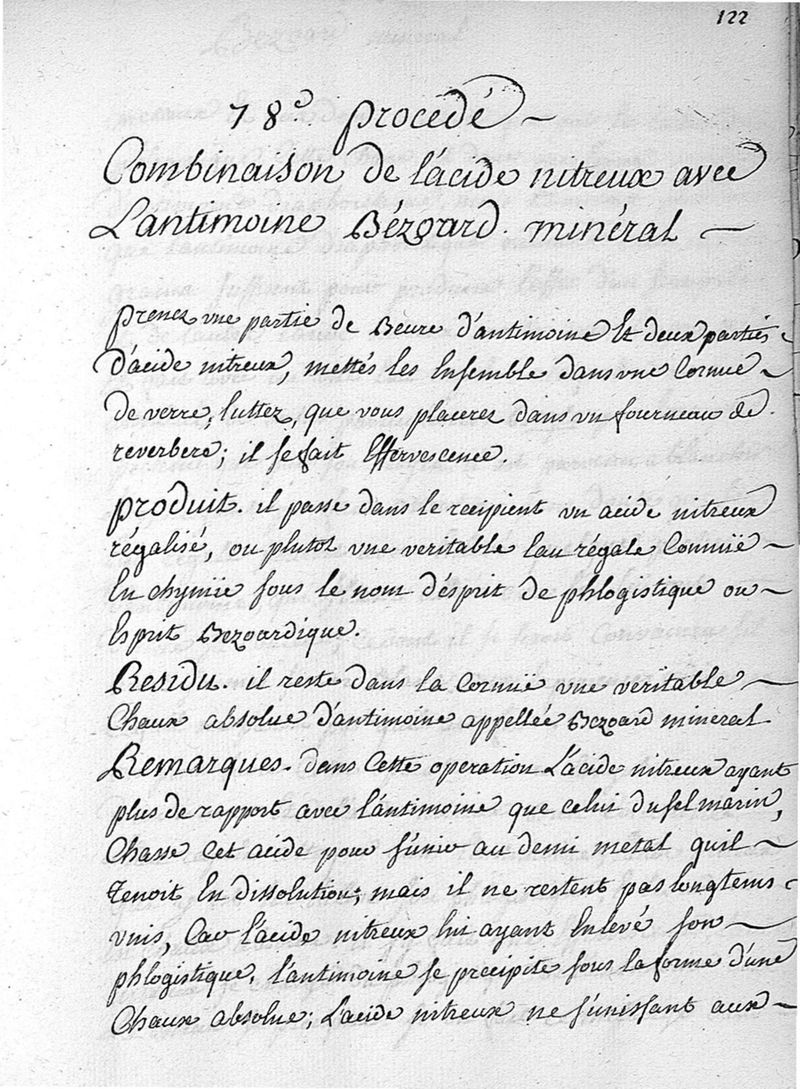 122
78e procédé
Combinaison de l'ácide nitreux avec
L'antimoine Bézoard. minéral
prenez une partie de Beure d'antimoine Et deux parties
d'acide nitreux, mettés les Ensemble dans une Cornue
de verre, luttez, que vous placerez dans un fourneau de
reverbere; il se fait Effervescence.
produit. il passe dans le recipient un acide nitreux
régalisé, ou plutot une veritable Eau régale Connüe
En chymie sous le nom d'ésprit de phlogistique ou
Esprit Bezoardique.
Residu. il reste dans la Cornüe une véritable
Chaux absolue d'antimoine appellée Bezoard mineral
Remarques. dans Cette operation L'ácide nitreux ayant
plus de rapport avec l'antimoine que celui du sel marin,
Chasse Cet acide pour s'únir au demi metal quil
tenoit En dissolution; mais il ne restent pas longtems
unis, Car l'ácide nitreux lui ayant Enlevé son
phlogistique, l'ántimoine se precipite sous la forme d'úne
Chaux absolue; L'acide nitreux ne s'únissant aux